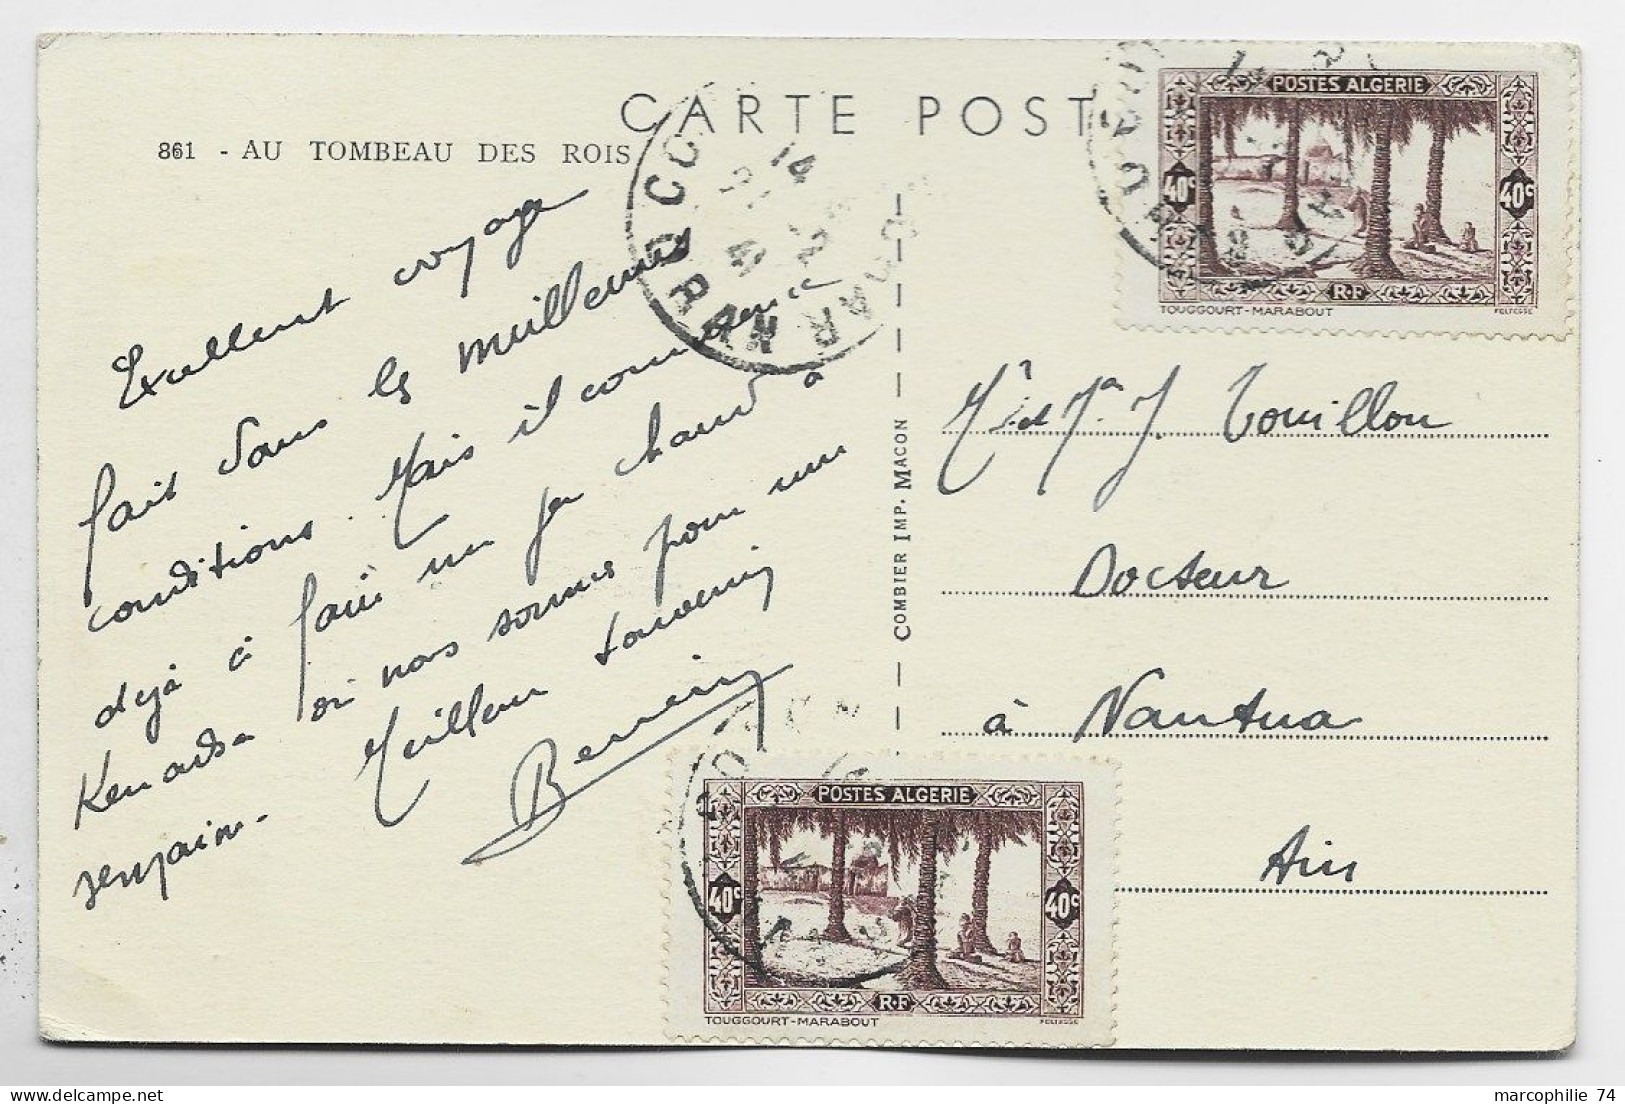 CARTE POST
861 - AU TOMBEAU DES ROIS
Excellent voyage
fait dans les meilleures
conditions. Mais il commence
déjà à faire un peu chaud à
Kenadsa où nous sommes pour une
semaine. Meilleur souvenir
COMBIER IMP. MACON
Mr et Ma J. Touillon
Docteur
à Nantua
Ain
POSTES ALGERIE
40c 40c
RF
TOUGGOURT-MARABOUT
FELTESSE
POSTES ALGERIE
40c 40c
RF
TOUGGOURT-MARABOUT
FELTESSE
14
41
ORAN
marcophilie 74